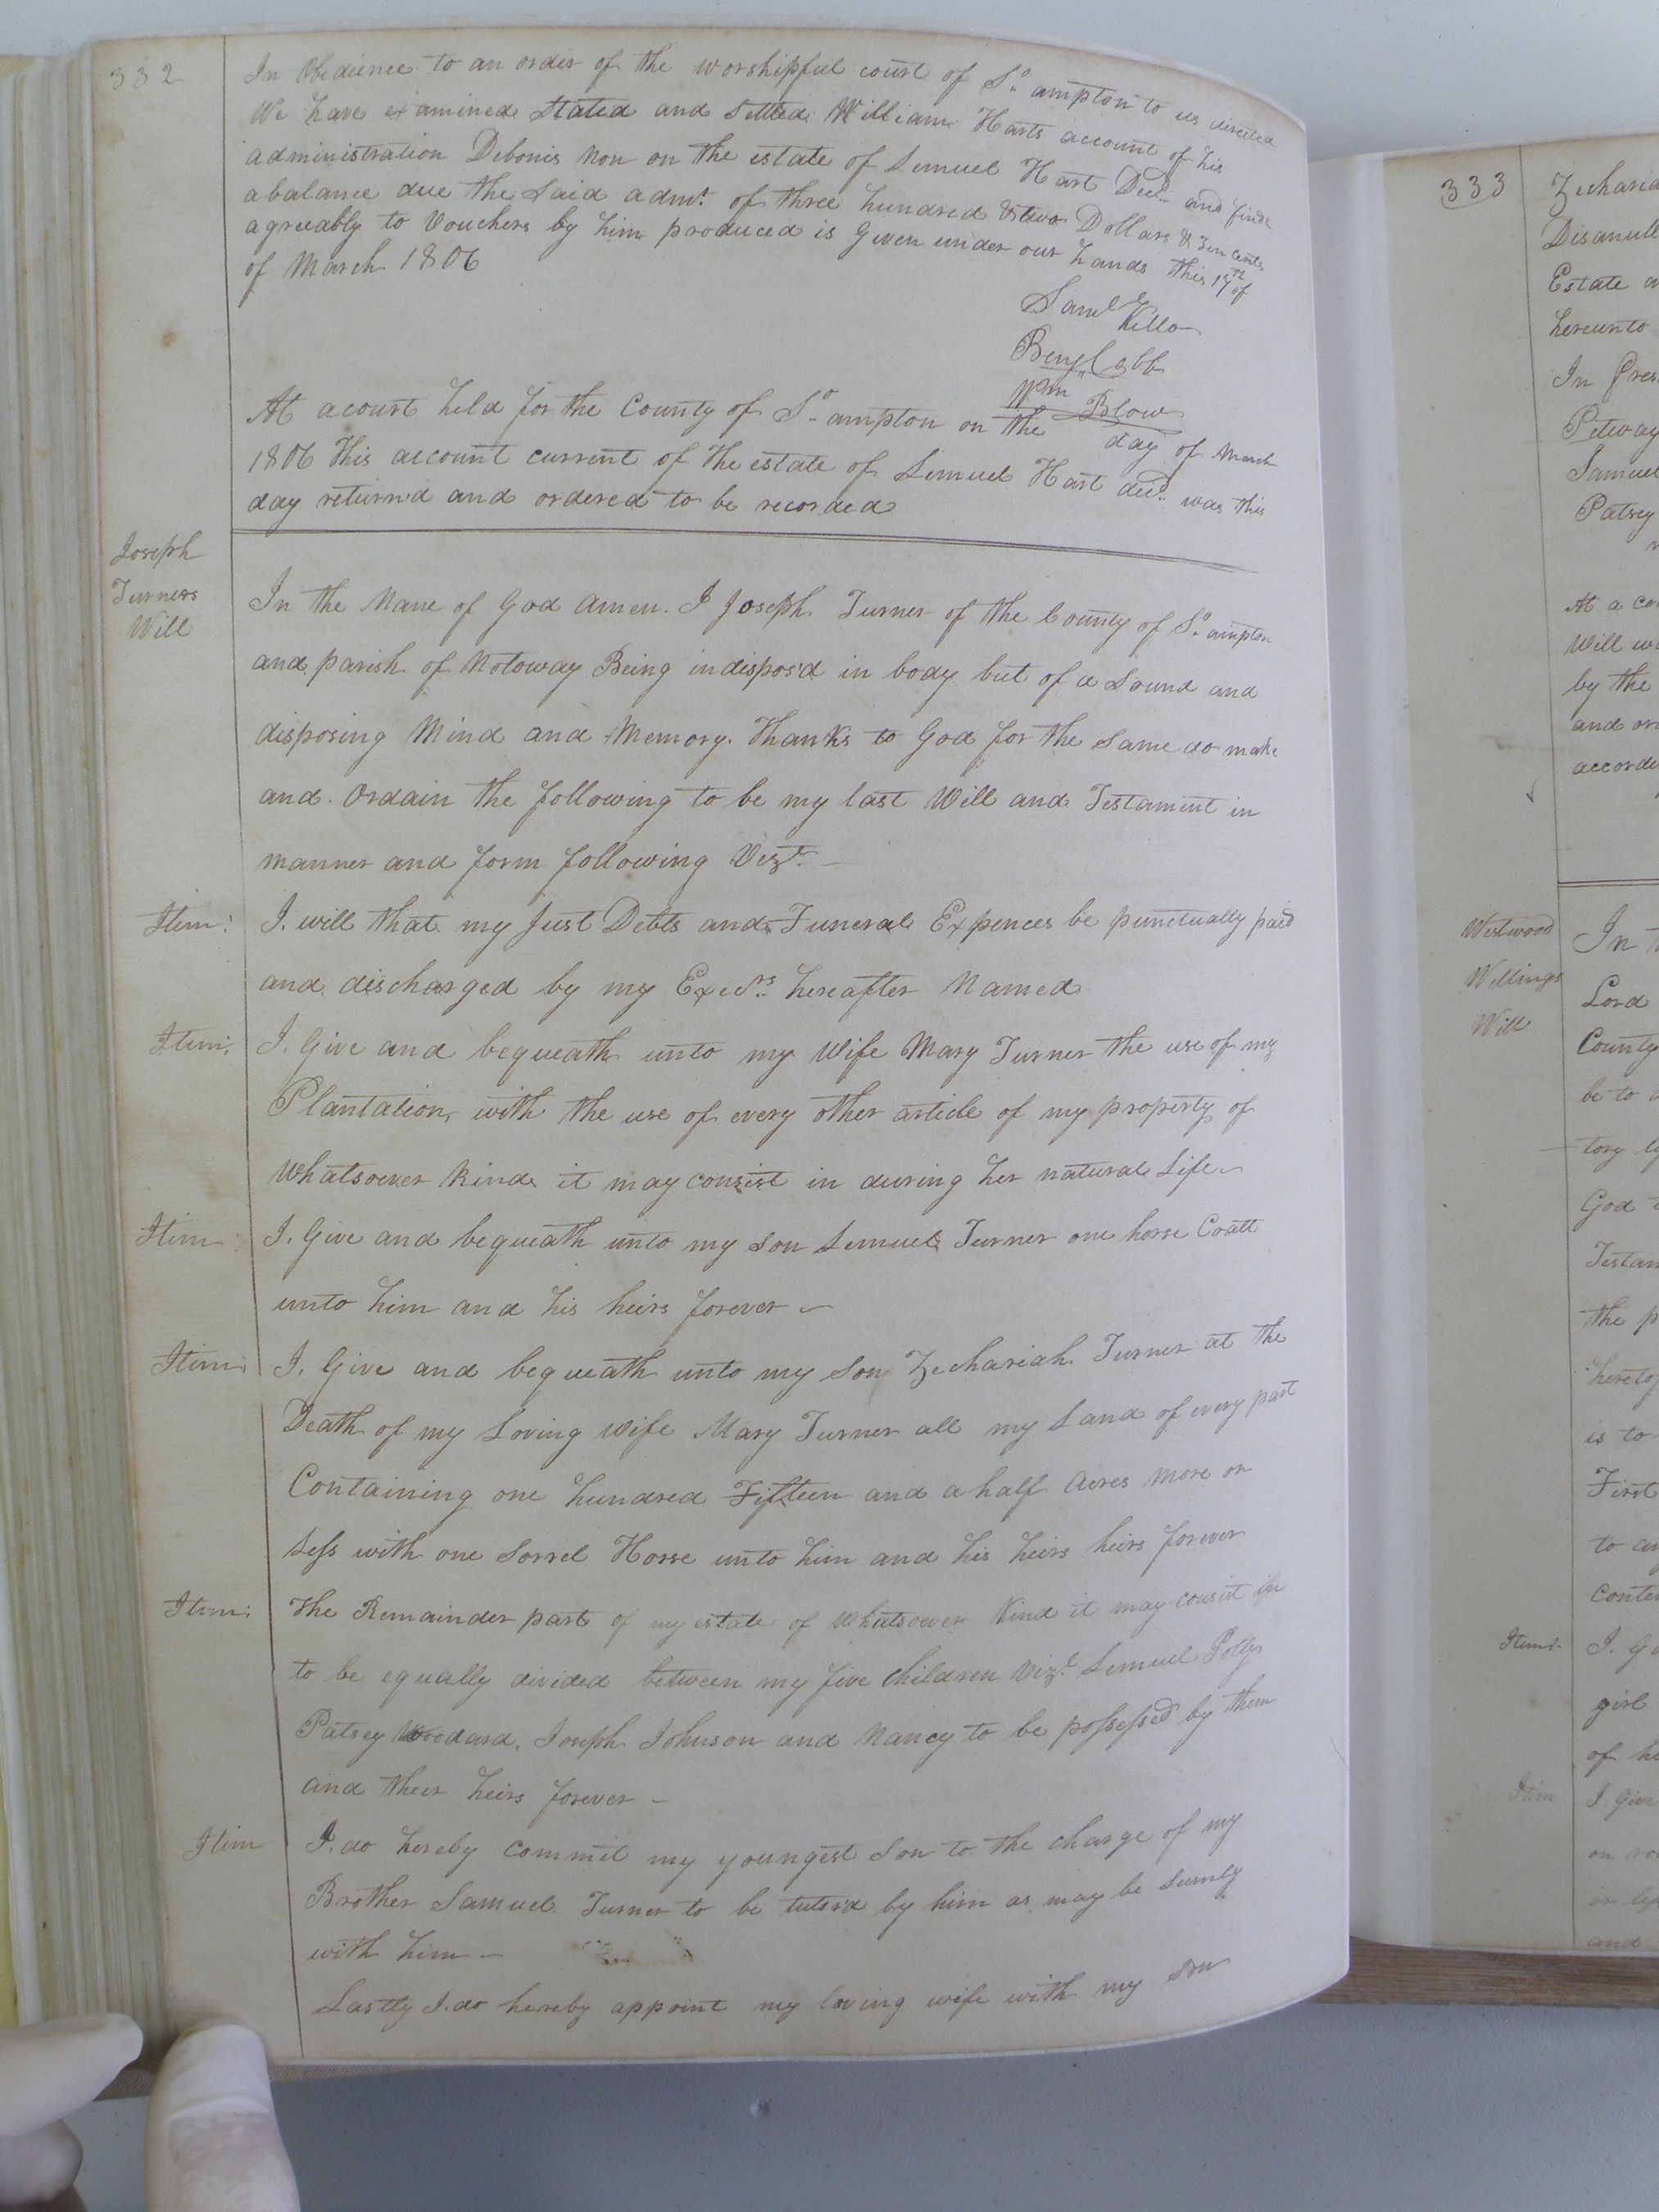 332
In Obedience to an order of the worshipful court of So. ampton to us directed
We have examined Stated and Settled William Harts account of his
administration Debonis Non on the estate of Lemuel Hart Decd. and finde
a balance due the Said admr. of three hundred & two Dollars & Ten Cents
agreeably to Vouchers by him produced is Given under our hands this 17th of
of March 1806
Saml Kello
Benj. Cobb
Wm Blow
At a court held for the County of So. ampton on the day of March
1806 This account current of the estate of Lemuel Hart decd. was this
day return'd and ordered to be recorded
Joseph
Turners
Will
In the Name of God Amen. I Joseph Turner of the County of So. ampton
and parish of Notoway Being indispos'd in body but of a Sound and
disposing Mind and Memory. Thanks to God for the Same do make
and Ordain the following to be my last Will and Testament in
manner and form following Vizt.
Item: I. will that my Just Debts and Funeral Expences be punctually paid
and discharged by my Exectrs. hereafter Named
Item: I. Give and bequeath unto my Wife Mary Turner the use of my
Plantation, with the use of every other article of my property of
Whatsoever Kind it may consist in during her natural Life
Item I. Give and bequeath unto my Son Lemuel Turner one horse Coalt
unto him and his heirs forever
Item: I. Give and bequeath unto my Son Zechariah Turner at the
Death of my Loving Wife Mary Turner all my Land of every part
Containing one hundred Fifteen and a half Acres More or
Less with one Sorrel Horse unto him and his heirs heirs forever
Item: The Remainder part of my estate of Whatsoever Kind it may consist in
to be equally divided between my five Children Vizt. Lemuel Polly
Patsey Woodard, Joseph Johnson and Nancy to be possess'd by them
and their heirs forever
Item I. do hereby Commit my youngest Son to the charge of my
Brother Samuel Turner to be tutor'd by him as may be Seemly
with him
Lastly I. do hereby appoint my loving wife with my son
333
Zecharia
Disanull
Estate a
hereunto
In Pres
Petway
Samuel
Patsey
At a co
Will w
by the
and or
accordi
Westwood
Wellings
Will
In
Lord
County
be to
tory
God
Testam
the p
hereto
is to
First
to
Conte
Item
I. G
girl
of h
Item
I. Give
on
and